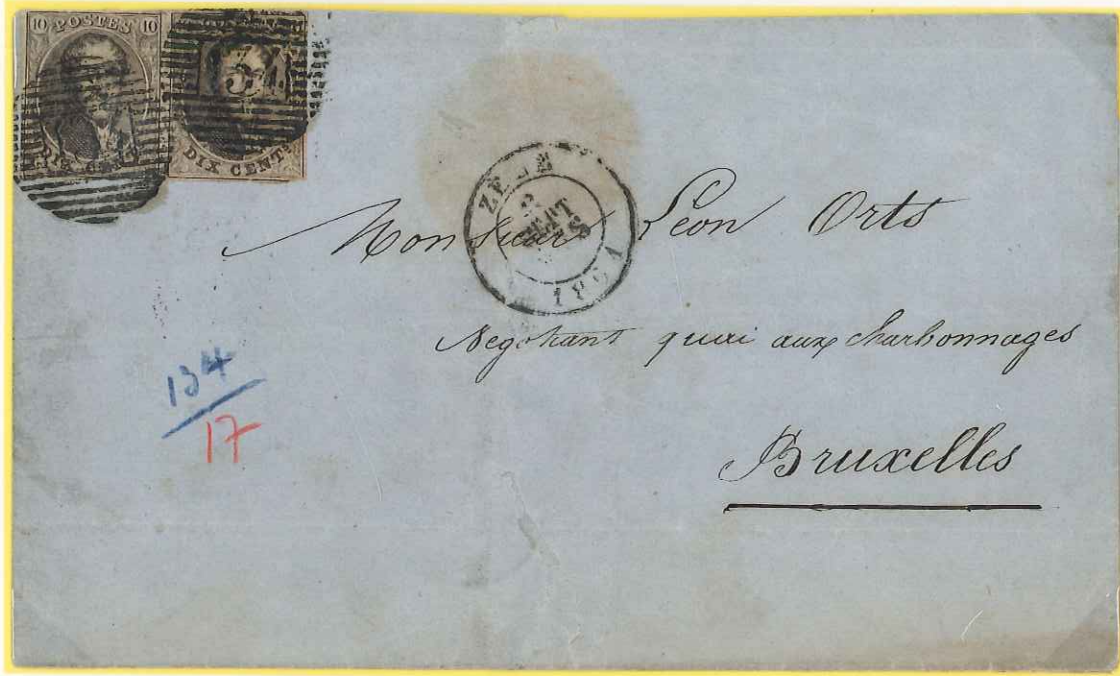 10 POSTES 10
DIX CENTS
134
ZELE
SEPT
Monsieur Léon Orts
Negotiant quai aux charbonnages
134
17
Bruxelles